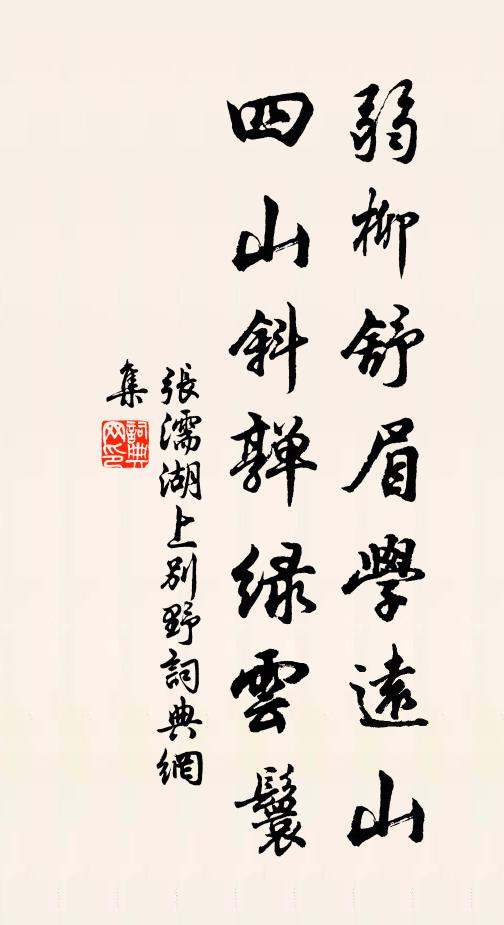 弱柳舒眉學遠山
四山斜亸緑雲鬟
張濡湖上別野詞典網
集
詞典
网印